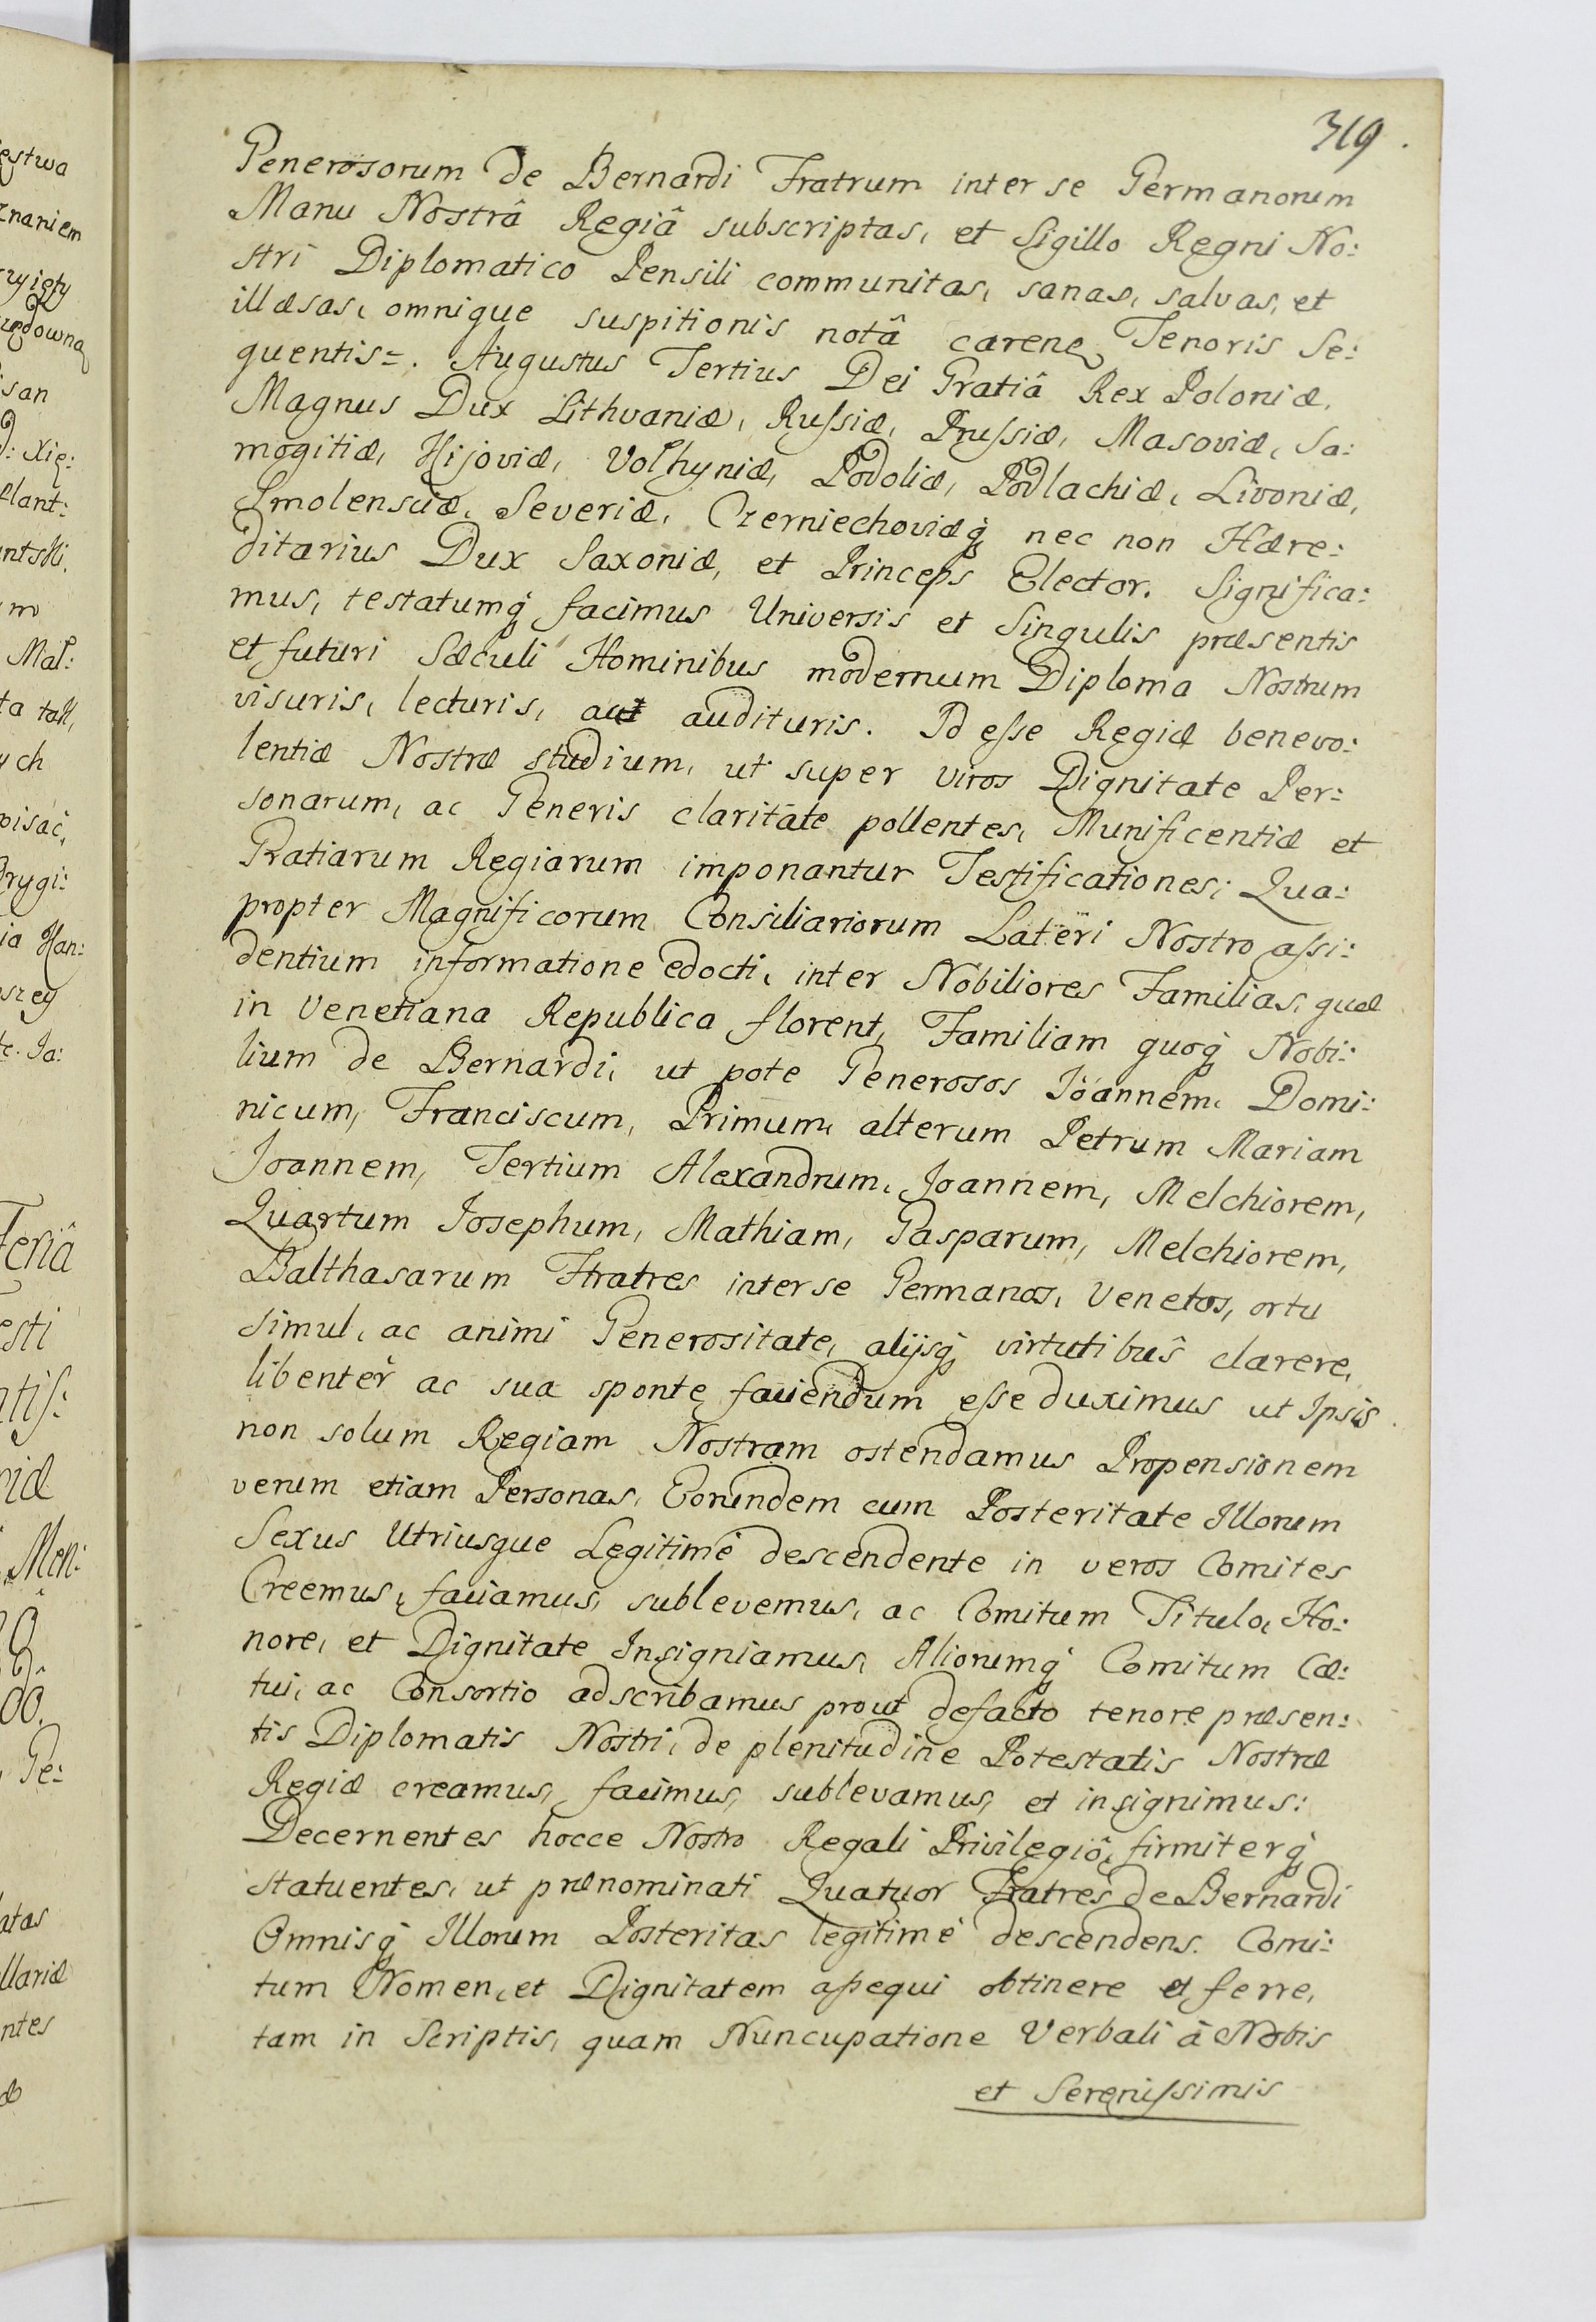 319.
Generosorum de Bernardi Fratrum inter se Germanorum
Manu Nostrâ Regiâ subscriptas, et Sigillo Regni No:
stri Diplomatico Pensili communitas, sanas, salvas, et
illæsas, omnique suspitionis notâ carene Tenoris Se:
quentis=. Augustus Tertius Dei Gratiâ Rex Poloniæ,
Magnus Dux Lithvaniæ, Russiæ, Prussiæ, Masoviæ, Sa:
mogitiæ, Kijoviæ, Volhyniæ, Podoliæ, Podlachiæ, Livoniæ,
Smolensciæ, Severiæ, Czerniechoviæq; nec non Hære:
ditarius Dux Saxoniæ, et Princeps Elector. Significa:
mus, testatumq; facimus Universis et Singulis præsentis
et futuri Sæculi Hominibus modernum Diploma Nostrum
visuris, lecturis, aut audituris. Id esse Regiæ benevo:
lentiæ Nostræ studium, ut super viros Dignitate Per:
sonarum, ac Generis claritate pollentes, Munificentiæ et
Gratiarum Regiarum imponantur Testificationes; Qua:
propter Magnificorum Consiliariorum Lateri Nostro assi:
dentium informatione edocti, inter Nobiliores Familias, quæ
in Venetiana Republica florent, Familiam quoq; Nobi:
lium de Bernardi, ut pote Generosos Joannem, Domi:
nicum, Franciscum, Primum, alterum Petrum Mariam
Joannem, Tertium Alexandrum, Joannem, Melchiorem,
Quartum Josephum, Mathiam, Gasparum, Melchiorem,
Balthasarum Fratres inter se Germanos, Venetos, ortu
simul, ac animi Generositate, alijsq; virtutibus clarere,
libenter ac sua sponte faciendum esse duximus ut Ipsis
non solum Regiam Nostram ostendamus Propensionem
verum etiam Personas, Eorundem cum Posteritate Illorum
Sexus Utriusque Legitimè descendente in veros Comites
Creemus, faciamus, sublevemus, ac Comitum Titulo, Ho:
nore, et Dignitate Insigniamus, Aliorumq; Comitum Cæ:
tui, ac Consortio adscribamus prout defacto tenore præsen:
tis Diplomatis Nostri, de plenitudine Potestatis Nostræ
Regiæ creamus, facimus, sublevamus, et insignimus:
Decernentes hocce Nostro Regali Privilegiô, firmiterq;
statuentes, ut prænominati Quatuor Fratres de Bernardi
Omnisq; Illorum Posteritas legitimè descendens. Comi:
tum Nomen, et Dignitatem assequi obtinere et ferre,
tam in Scriptis, quam Nuncupatione Verbali â Nobis
et Serenissimis